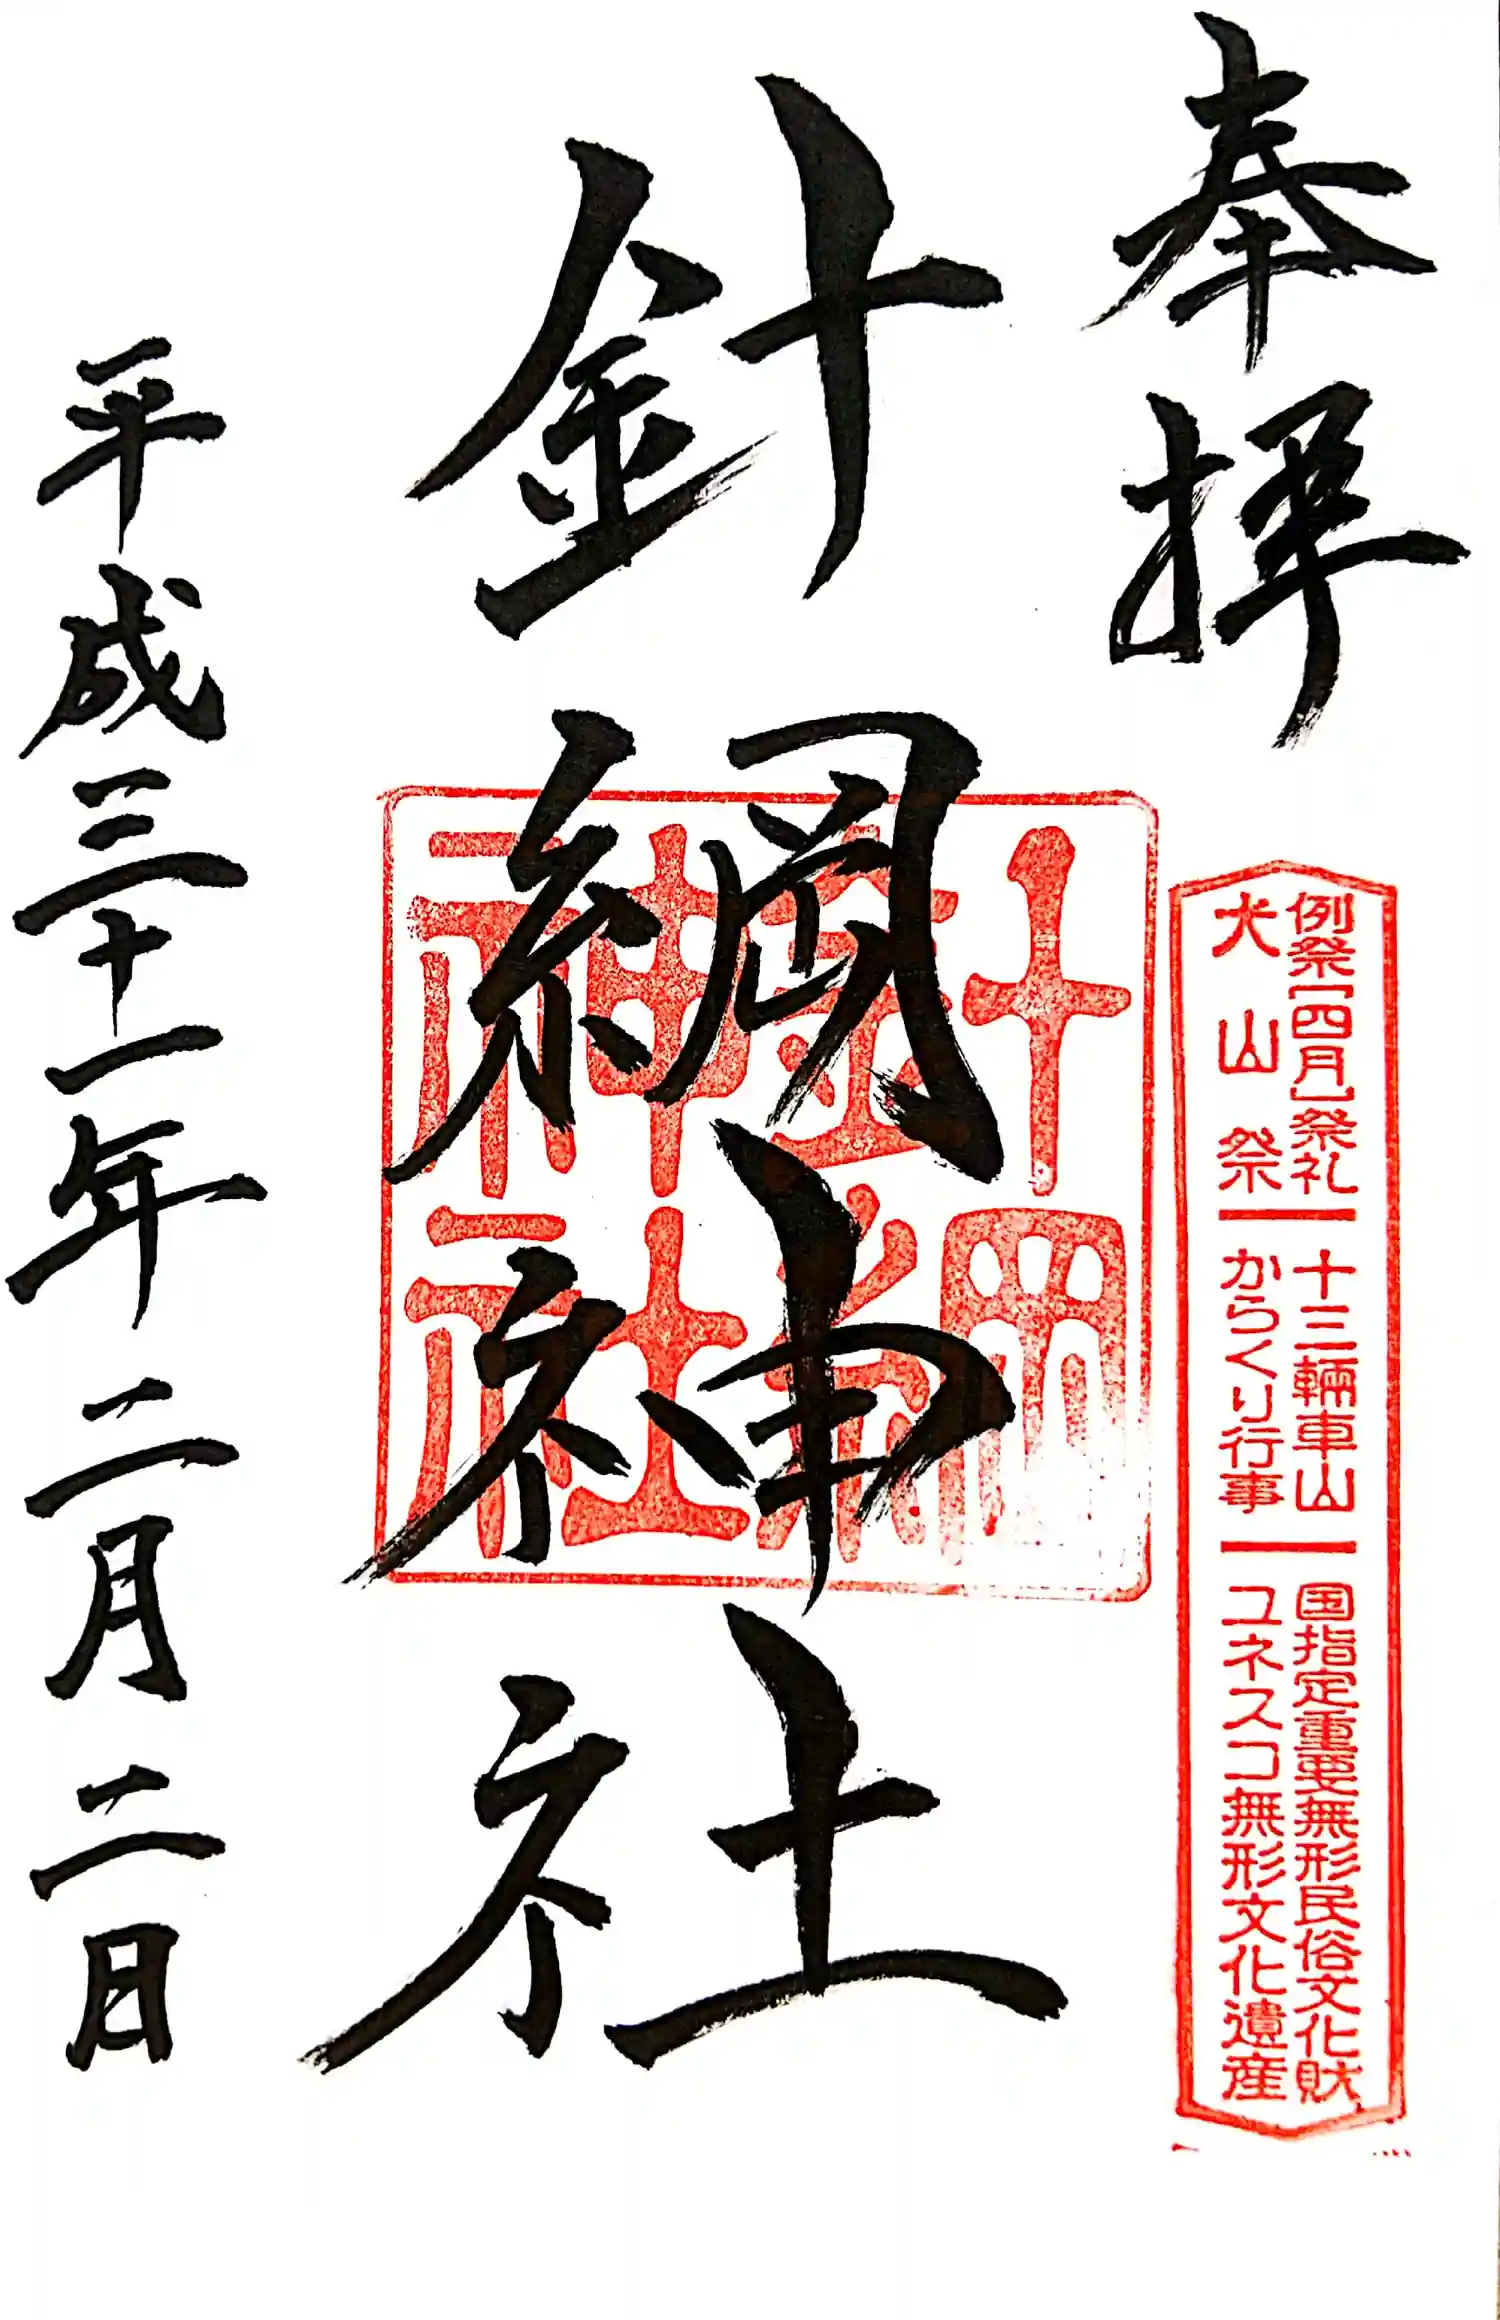 奉拝
例祭[四月]祭礼 十三輛車山 国指定重要無形民俗文化財
犬山祭 からくり行事 ユネスコ無形文化遺産
針綱神社
針綱神社
平成三十一年二月二日